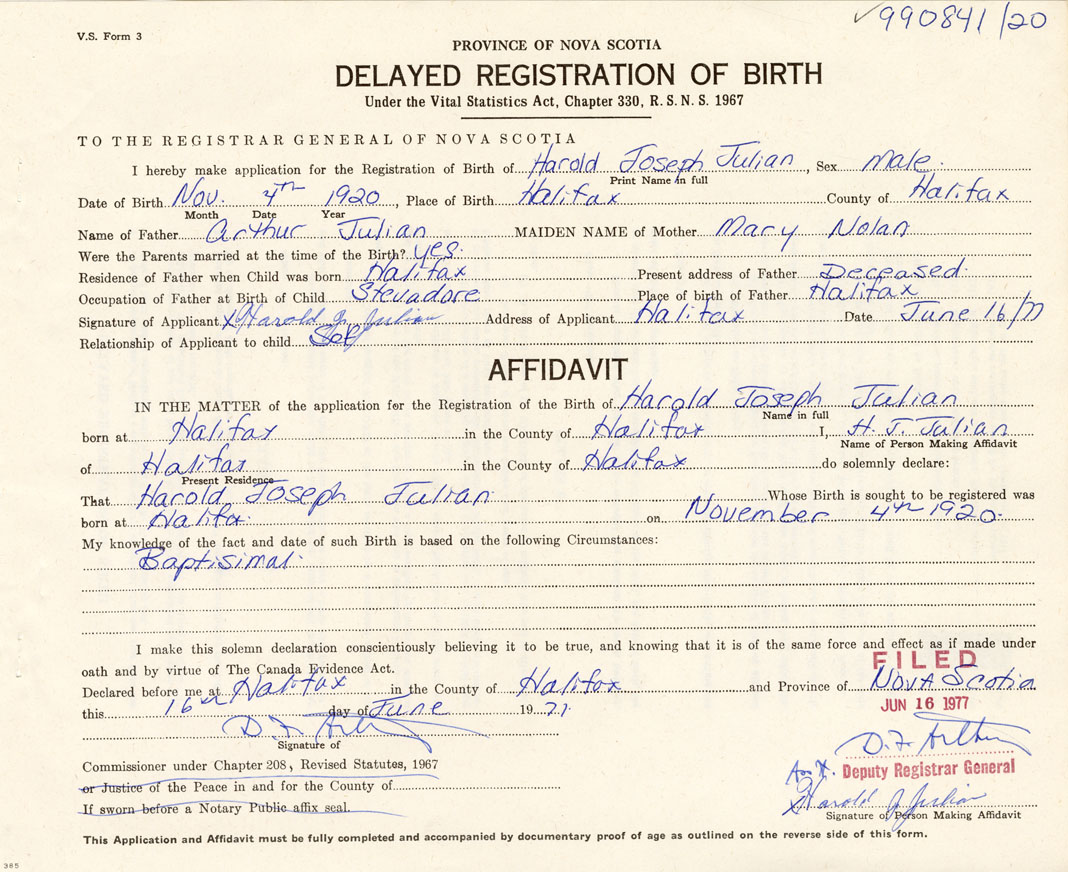 V.S. Form 3
✓990841/20
PROVINCE OF NOVA SCOTIA
DELAYED REGISTRATION OF BIRTH
Under the Vital Statistics Act, Chapter 330, R. S. N. S. 1967
TO THE REGISTRAR GENERAL OF NOVA SCOTIA
I hereby make application for the Registration of Birth of Harold Joseph Julian, Sex Male.
Print Name in full
Date of Birth Nov. 4th 1920, Place of Birth Halifax County of Halifax
Month Date Year
Name of Father Arthur Julian MAIDEN NAME of Mother Mary Nolan
Were the Parents married at the time of the Birth? yes.
Residence of Father when Child was born Halifax Present address of Father Deceased.
Occupation of Father at Birth of Child Stevadore Place of birth of Father Halifax
Signature of Applicant X Harold J. Julian Address of Applicant Halifax Date June 16/77
Relationship of Applicant to child Self
AFFIDAVIT
IN THE MATTER of the application for the Registration of the Birth of Harold Joseph Julian
Name in full
born at Halifax in the County of Halifax I, H. J. Julian
Name of Person Making Affidavit
of Halifax in the County of Halifax do solemnly declare:
Present Residence
That Harold Joseph Julian Whose Birth is sought to be registered was
born at Halifax. on November 4th 1920.
My knowledge of the fact and date of such Birth is based on the following Circumstances:
Baptisimal.
I make this solemn declaration conscientiously believing it to be true, and knowing that it is of the same force and effect as if made under
oath and by virtue of The Canada Evidence Act.
FILED
Declared before me at Halifax in the County of Halifax and Province of Nova Scotia
JUN 16 1977
this 16th day of June 1977.
D. F. Arthur
Signature of
D. F. Arthur
Commissioner under Chapter 208, Revised Statutes, 1967
Deputy Registrar General
or Justice of the Peace in and for the County of
Harold J Julian
If sworn before a Notary Public affix seal.
Signature of Person Making Affidavit
This Application and Affidavit must be fully completed and accompanied by documentary proof of age as outlined on the reverse side of this form.
385